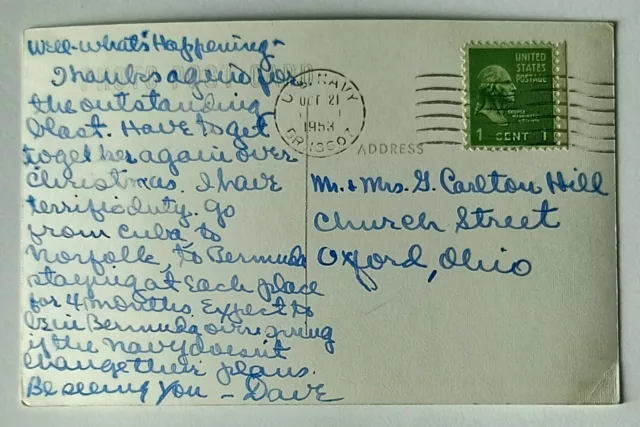 Well-what's Happening-
Thanks again for
the outstanding
blast. Have to get
together again over
Christmas. I have
terrific duty. Go
from Cuba, to
Norfolk, to Bermuda
staying at each place
for 4 months. Expect to
be in Bermuda over spring
if the navy doesn't
change their plans.
Be seeing you - Dave
U.S. NAVY
OCT 21
1953
UNITED
STATES
POSTAGE
GEORGE
WASHINGTON
1 CENT 1
ADDRESS
Mr. & Mrs. G. Carlton Hill
Church Street
Oxford, Ohio